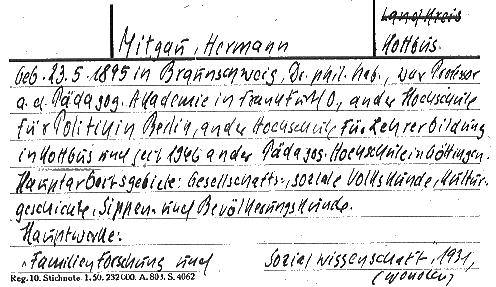 Landkreis
Mitgau, Hermann
Kottbus.
Geb. 23.5.1895 in Braunschweig, Dr. phil. hab., war Professor
a. d. Pädagog. Akademie in Frankfurt/O, an der Hochschule
für Politik in Berlin, an der Hochschule für Lehrerbildung
in Kottbus und seit 1946 an der Pädagog. Hochschule in Göttingen.
Hauptarbeitsgebiete: Gesellschafts-, soziale Volkskunde, Kultur-
geschichte, Sippen- und Bevölkerungskunde.
Hauptwerke:
"Familienforschung und Sozialwissenschaft", 1931,
Reg. 10. Stichnote. 1. 50. 232 000. A. 803. S. 4062